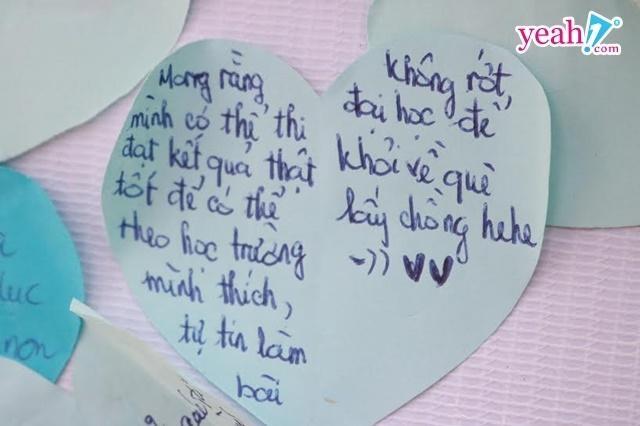 yeah1
.com
Mong rằng
mình có thể thi
đạt kết quả thật
tốt để có thể
theo học trường
mình thích,
tự tin làm
bài
không rớt
đại học để
khỏi về quê
lấy chồng hehe
=)) ♥♥
luc
non